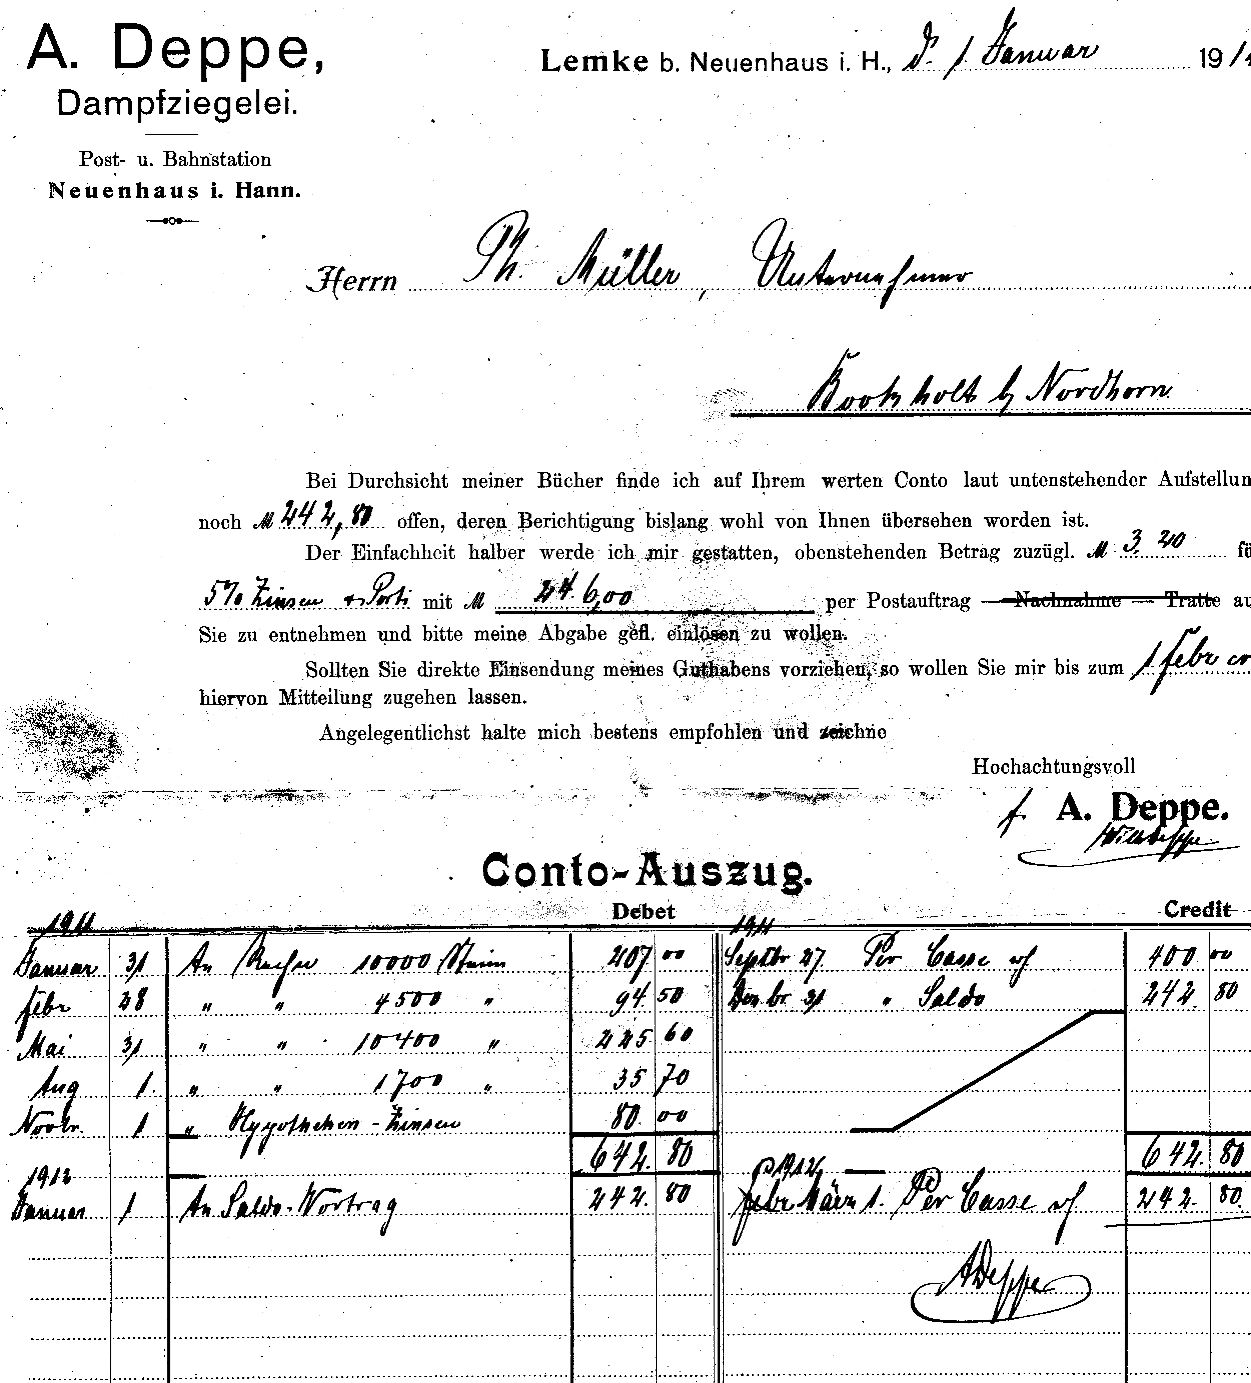 A. Deppe,
Dampfziegelei.
Post- u. Bahnstation
Neuenhaus i. Hann.
Lemke b. Neuenhaus i. H., d. 1 Januar 191
Herrn Ph. Müller, Unternehmer
Bookholt b/ Nordhorn
Bei Durchsicht meiner Bücher finde ich auf Ihrem werten Conto laut untenstehender Aufstellun
noch M 242,80 offen, deren Berichtigung bislang wohl von Ihnen übersehen worden ist.
Der Einfachheit halber werde ich mir gestatten, obenstehenden Betrag zuzügl. M 3.20 fü
5% Zinsen & Porti mit M 246,00 per Postauftrag — Nachnahme — Tratte au
Sie zu entnehmen und bitte meine Abgabe gefl. einlösen zu wollen.
Sollten Sie direkte Einsendung meines Guthabens vorziehen, so wollen Sie mir bis zum 1 Febr cr
hiervon Mitteilung zugehen lassen.
Angelegentlichst halte mich bestens empfohlen und zeichne
Hochachtungsvoll
f. A. Deppe.
Conto-Auszug.
Debet Credit
1911 1911
Januar 31 An 10000 Steine 207 00 Septbr 27 Per Casse 400 00
Febr 28 " " 4500 " 94 50 Dezbr. 31 " Saldo 242 80
Mai 31 " " 10400 " 225 60
Aug 1. " " 1700 " 35 70
Novbr. 1 " Hypotheken-Zinsen 80 00
642. 80 642. 80
1912 1912
Januar 1 An Saldo-Vortrag 242. 80 Febr März 1. Per Casse 242. 80.
ADeppe